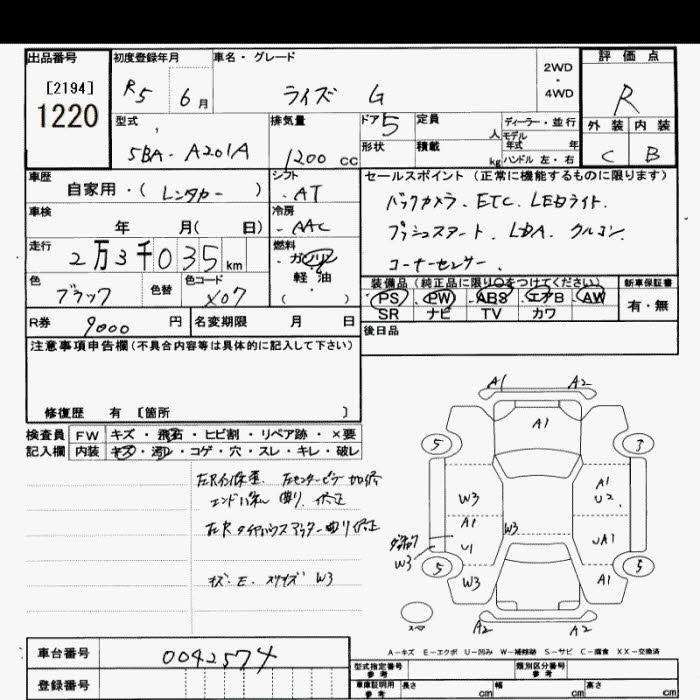 出品番号
[2194]
1220
初度登録年月
R5 6月
車名・グレード
ライズ G
2WD
・
4WD
評価点
R
外装 内装
C B
型式
5BA-A201A
排気量
1200 cc
ドア 5
定員
人
形状
積載
kg
ディーラー・並行
モデル
年式 年
ハンドル 左・右
車歴
自家用・( レンタカー )
シフト
・AT
車検
年 月( 日)
冷房
・AAC
走行
2万3千035 km
燃料
・ガソリン
軽油
・( )
色
ブラック
色替
色コード
X07
R券 9000 円
名変期限 月 日
セールスポイント(正常に機能するものに限ります)
バックカメラ. ETC. LEDライト.
プッシュスタート. LDA. クルコン.
コーナーセンサー.
装備品(純正品に限り○をつけてください)
PS PW ABS エアB AW
SR ナビ TV カワ
新車保証書
有・無
後日品
注意事項申告欄(不具合内容等は具体的に記入して下さい)
修復歴 有 〔箇所 〕
検査員
記入欄
FW キズ・飛石・ヒビ割・リペア跡・×要
内装 キズ・汚レ・コゲ・穴・スレ・キレ・破レ
エンドパネル 曲り. 修正
キズ. E. W3
A1 A2
A1
5 3
W3
A1
U2
A1
U1
W3
UA1
W3
5 5
W3
A1
スペア
A2 A2
A-キズ E-エクボ U-凹み W-補修跡 S-サビ C-腐食 XX-交換済
車台番号 0042574
登録番号
型式指定番号
参考
類別区分番号
参考
車庫証明用
参考
長さ cm
幅 cm
高さ cm